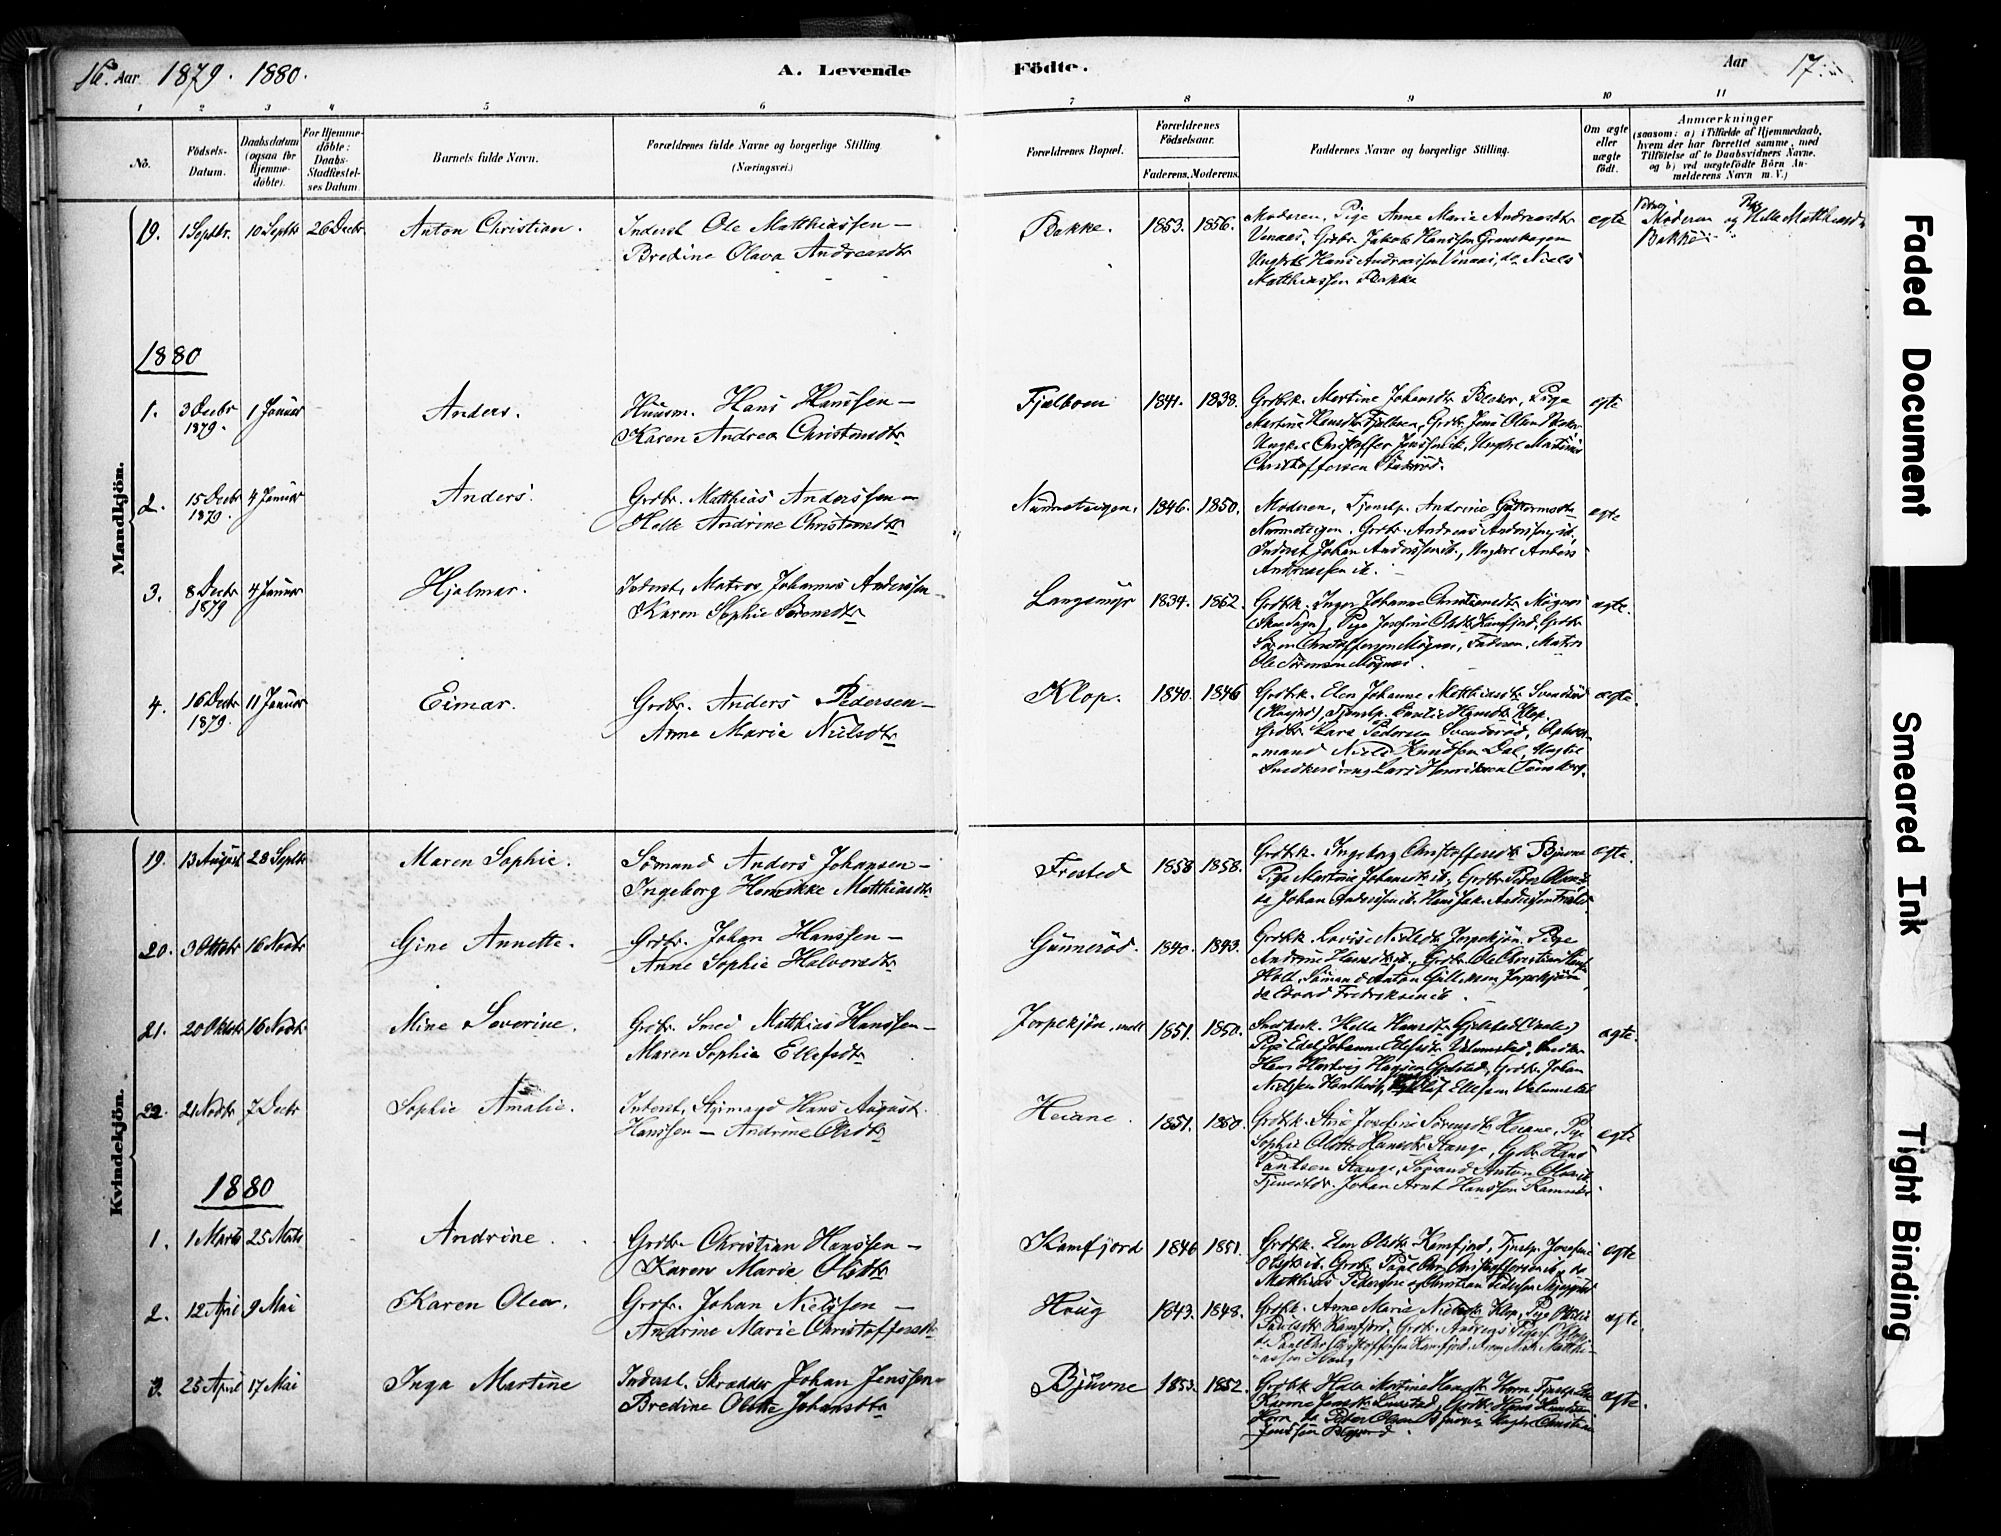 16. Aar 1879. 1880. A. Levende
Födte. Aar 17.
1 2 3 4 5 6
7 8 9 10 11
No.
Födsels-Datum.
Daabsdatum (ogsaa for Hjemme-döbte).
For Hjemme-döbte: Daabs-Stadfæstel-ses Datum
Barnets fulde Navn.
Forældrenes fulde Navne og borgerlige Stilling.
(Næringsvei.)
Forældrenes Bopæl.
Forældrenes Födselsaar.
Faderens. Moderens.
Faddernes Navne og borgerlige Stilling.
Om ægte eller uægte födt.
Anmærkninger
(saasom: a) i Tilfælde af Hjemmedaab,
hvem der har forrettet samme, med
Tilföielse af to Daabsvidners Navne.
og b) ved uægtefödte Börn An-
melderens Navn m. V.)
Mandkjön.
19. 1 Septbr. 10 Septbr 26 Decbr Anton Christian. Inderst Ole Matthiassen —
Bredine Olava Andreasdtr
Bakke. 1853. 1856. Moderen, Pige Anne Marie Andreasdtr
Venaas, Grdbr. Jakob Hanssen
Ungkrl. Hans Andreassen Venaas, do Niels
Matthiassen Bakke
ægte
Moderen og Pige Helle Matthiasdtr
Bakke
1880
1. 3 Decbr 1879. 1 Januar Anders. Huusm. Hans Hanssen —
Karen Andrea Christensdtr
Fjælboen 1841. 1838. Grdbrk. Martine Johansdtr Besker, Pige
Martine Hansdtr Fjælboen, Grdbr. Jens Olsen Besker
Ungkrl. Christoffer Jenssen ib., Ungkrl. Martinus
Christoffersen
ægte
2. 15 Decbr 1879. 4 Januar Anders. Grdbr. Matthias Anderssen —
Helle Andrine Christensdtr
1846. 1850. Moderen, Tjenstp. Andrine Guttormsdtr
Grdbr. Andreas Anderssen ib.
Inderst Johan Anderssen ib., Ungkrl Anders
Andreassen ib.
ægte
3. 8 Decbr 1879 4 Januar Hjalmar. Inderst, Matros Johannes Anderssen —
Karen Sophie Sörensdtr
Langemyr 1834. 1862. Grdbrk. Inger Johanne Christiansdtr Mögnæs
Pige Josefine Olsdtr Kamfjord, Grdbr
Sören Christoffersen Mögnæs, Faderen, Matros
Ole Sörensen Mögnæs.
ægte.
4. 16 Decbr 1879. 11 Januar Eimar. Grdbr. Anders Pedersen —
Anne Marie Nielsdtr
Klop. 1840. 1846 Grdbrk. Elen Johanne Matthiasdtr Svendsröd
Tjenstp. Emilie Hansdtr Klop.
Grdbr Lars Pedersen Svendsröd, Opsyns-
mand Niels Knudssen Dal, Ungkrl
Snedkersvend Lars Henriksen Tönsberg.
ægte.
Kvindekjön.
19. 13 August 28 Septbr Maren Sophie. Sömand Anders Johansen —
Ingeborg Henrikke Matthiasdtr
Frested 1858 1858. Grdbrk. Ingeborg Christoffersdtr Bjuvne
Pige Martine Johansdtr ib., Grdbr. Peder Olsen ib.
do Johan Anderssen ib. Hans Jak. Anderssen Frested
ægte.
20. 3 Oktbr 16 Novbr Gine Annette. Grdbr. Johan Hanssen —
Anne Sophie Halvorsdtr
Gunneröd. 1840. 1843. Grdbrk. Lovise Nielsdtr Jerpekjön. Pige
Andrine Hansdtr ib., Grdbr. Ole Christian
Holt, Sömand Anton Gulliksen Jerpekjön
do Edvard Fredriksen ib.
21. 20 Oktbr 16 Novbr Mine Severine. Grdbr. Smed Matthias Hanssen —
Maren Sophie Ellefsdtr
Jerpekjön, mell. 1851. 1850. Snedkerk. Helle Hansdtr Gjelstad
Pige Edel Johanne Ellefsdtr Valumstad, Snedker
Hans Hartvig Hansen Gjelstad, Grdbr. Johan
Nielssen Olaf Ellefsen Valumstad
ægte.
22. 2 Novbr 7 Decbr Sophie Amalie. Inderst, Styrmand Hans August
Hanssen — Andrine Olsdtr
Heiane. 1851. 1850. Grdbrk. Josefine Sörensdtr Heiane, Pige
Sophie Olette Hansdtr Stange, Grdbr. Hans
Paulsen Stange, Sömand Anton Olsen ib.
Tjenestdr. Johan Arnt Hanssen Ramnæs.
ægte
1880
1. 1 Marts 25 Marts Andrine. Grdbr Christian Hanssen —
Karen Marie Olsdtr
Kamfjord 1846 1851. Grdbrk. Elen Olsdtr Kamfjord, Tjenstp. Josefine
Olsdtr ib. Grdbr. Paul Chr. Christoffersen ib., do
Matthias Pedersen og Christian Pedersen
ægte
2. 12 April 9 Mai Karen Olea. Grdbr. Johan Nielssen —
Andrine Marie Christoffersdtr
Haug 1843. 1848. Grdbrk. Anne Marie Nielsdtr Klop, Pige
Paulsdtr Kamfjord, Grdbr. Anders Peders. Klop
do Paul Chr. Christoffersen Kamfjord, Matthi-
assen Haug
ægte.
3. 25 April 17 Mai Inga Martine Inderst. Skrædder Johan Jenssen —
Bredine Olette Johansdtr
Bjuvne 1853. 1852. Grdbrk Helle Martine Hansdtr Horn, Tjenstp.
Karine Jensdtr Linstad, Grdbr. Hans Knudsen
Horn, do Peder Olsen Bjuvne, Ungkrl Christian
Jenssen
ægte.
Faded Document
Smeared Ink
Tight Binding